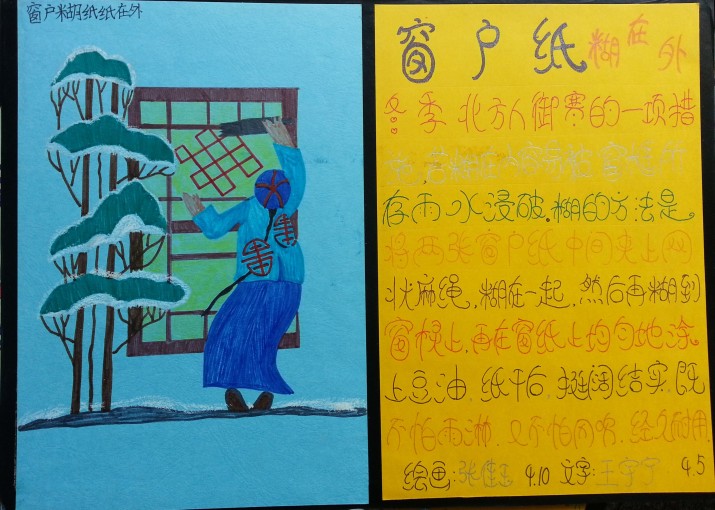 窗户糊纸纸在外
窗户纸糊在外
冬季北方人御寒的一项措
若糊在
存雨水浸破.糊的方法是
将两张窗户纸中间夹上网
状麻绳,糊在一起,然后再糊到
窗棂上,再在窗纸上均匀地涂
上豆油,纸干后,挺阔结实,既
不怕雨淋,又不怕风吹,经久耐用
绘画:张佳玉 4.10 文字:王宇宁 4.5